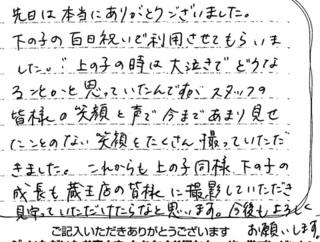 先日は本当にありがとうございました。
下の子の百日祝いで利用させてもらいま
した。上の子の時は大泣きでどうな
ることかと思っていたんですが、スタッフの
皆様の笑顔と声で今まであまり見せ
たことのない笑顔をたくさん撮っていただ
きました。これからも上の子同様、下の子の
成長も蔵王店の皆様に撮影していただき
見守っていただけたらなと思います。今後もよろしく
お願いします。
ご記入いただきありがとうございます